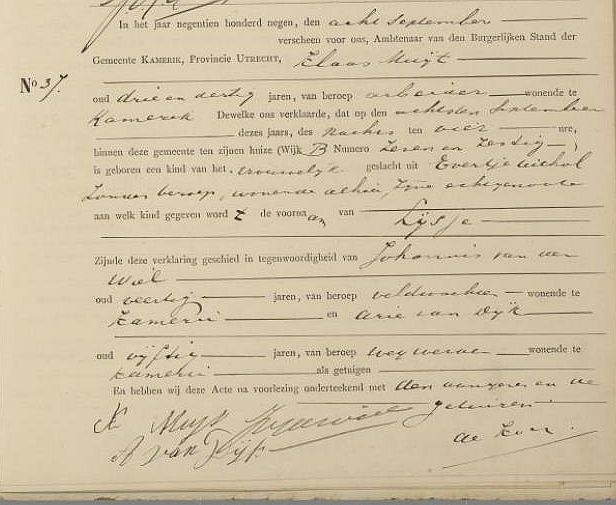 In het jaar negentien honderd negen, den acht September
verscheen voor ons, Ambtenaar van den Burgerlijken Stand der
Gemeente KAMERIK, Provincie UTRECHT, Klaas Muijt
No 37.
oud drie en dertig jaren, van beroep arbeider wonende te
Kamerik Dewelke ons verklaarde, dat op den achtsten September
dezes jaars, des nachts ten vier ure,
binnen deze gemeente ten zijnen huize (Wijk B Numero zeven en zestig )
is geboren een kind van het vrouwelijk geslacht uit Evertje
zonder beroep, wonende alhier, zijne echtgenoote
aan welk kind gegeven word t de voorna am van Lijsje
Zijnde deze verklaring geschied in tegenwoordigheid van Johannis van der
Wiel
oud veertig jaren, van beroep veldwachter wonende te
Kamerik en Arie van Dijk
oud vijftig jaren, van beroep wegwerker wonende te
Kamerik als getuigen
En hebben wij deze Acte na voorlezing onderteekend met den aangever en de
getuigen.
K Muijt
A van Dijk